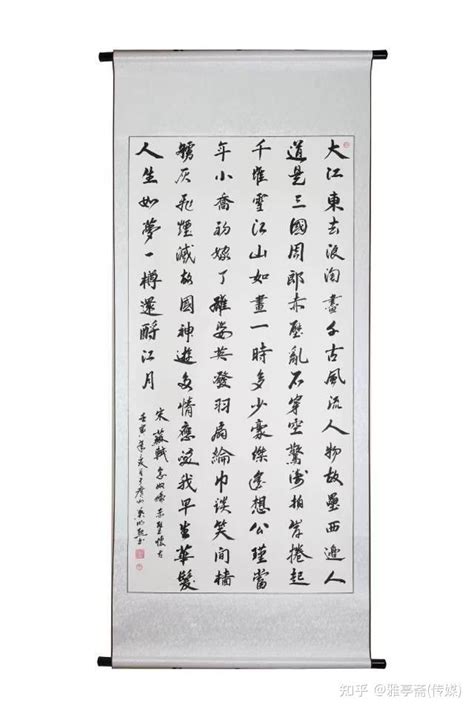 大江東去浪淘盡千古風流人物故壘西邊人
道是三國周郎赤壁亂石穿空驚濤拍岸捲起
千堆雪江山如畫一時多少豪傑遙想公瑾當
年小喬初嫁了雄姿英發羽扇綸巾談笑間檣
艣灰飛煙滅故國神遊多情應笑我早生華髮
人生如夢一樽還酹江月
宋蘇軾念奴嬌赤壁懷古
壬寅年
知乎 @雅亭斋(传媒)